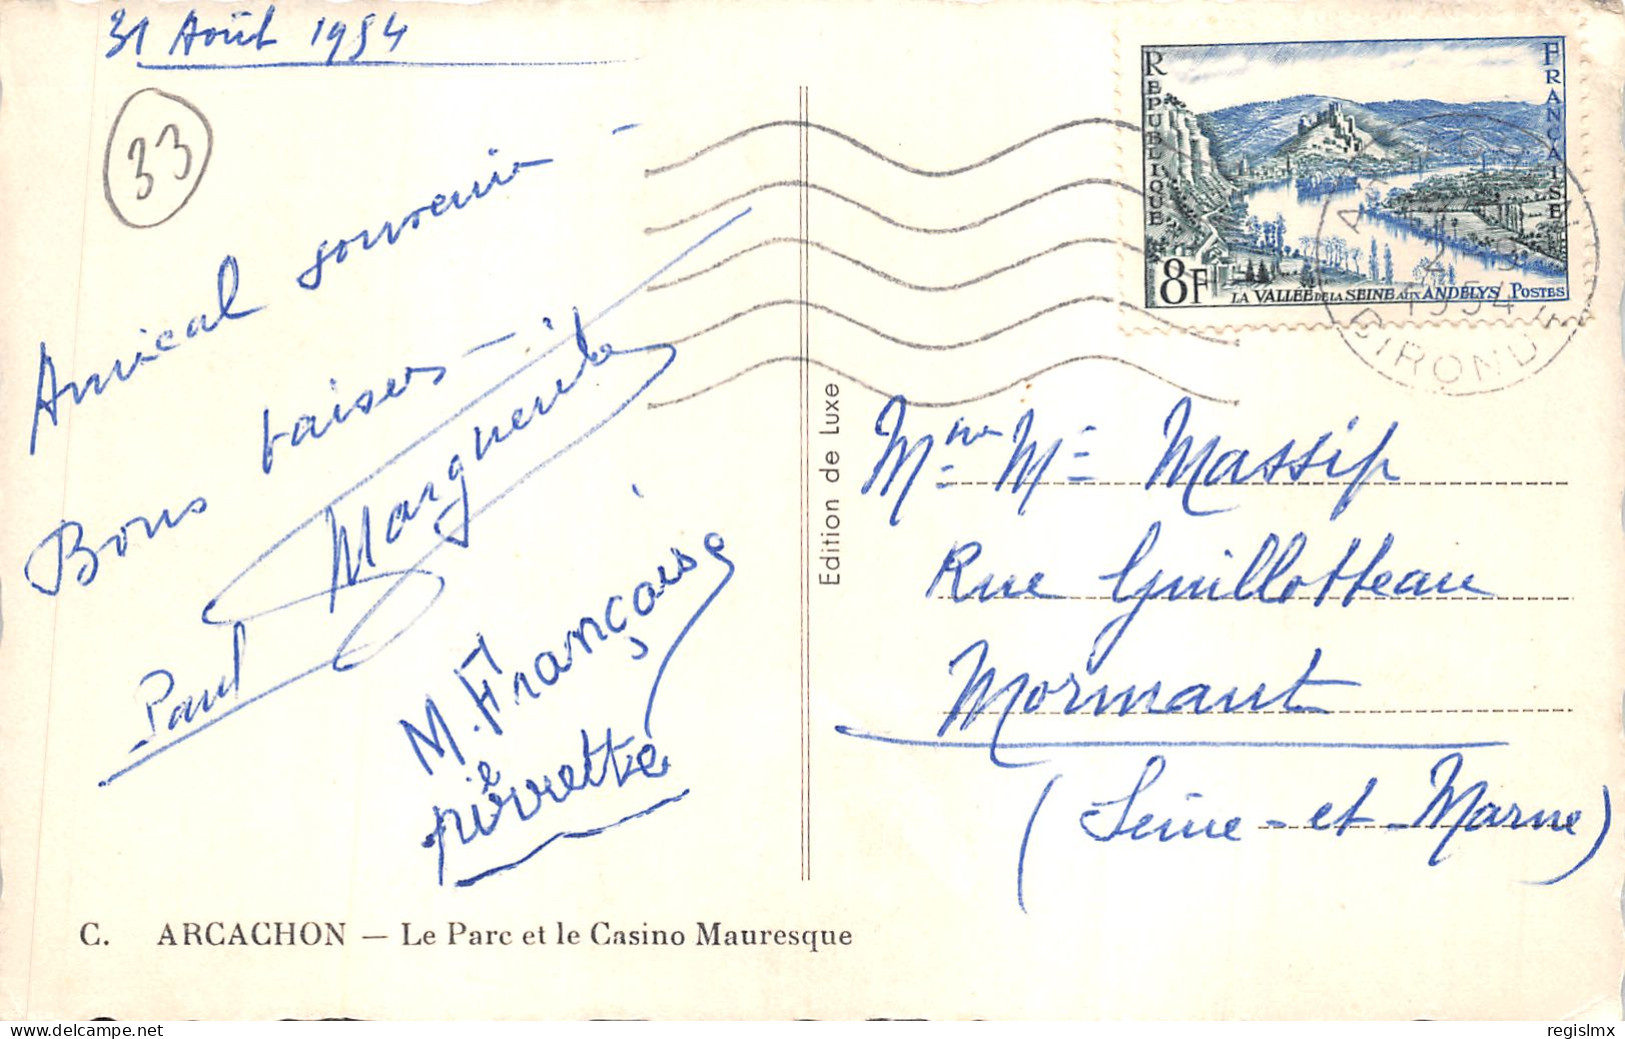 31 Août 1954
33
Amical souvenir -
Bons baisers -
Marguerite
Paul
M. Françoise
pierrette
C. ARCACHON — Le Parc et le Casino Mauresque
Edition de Luxe
REPUBLIQUE FRANCAISE
8F
LA VALLÉE DE LA SEINE AUX ANDELYS POSTES
ARCACHON
2 - 9
1954
GIRONDE
Mme Mr Massip
Rue Guillotteau
Mormant
(Seine - et - Marne)
delcampe.net
regislmx